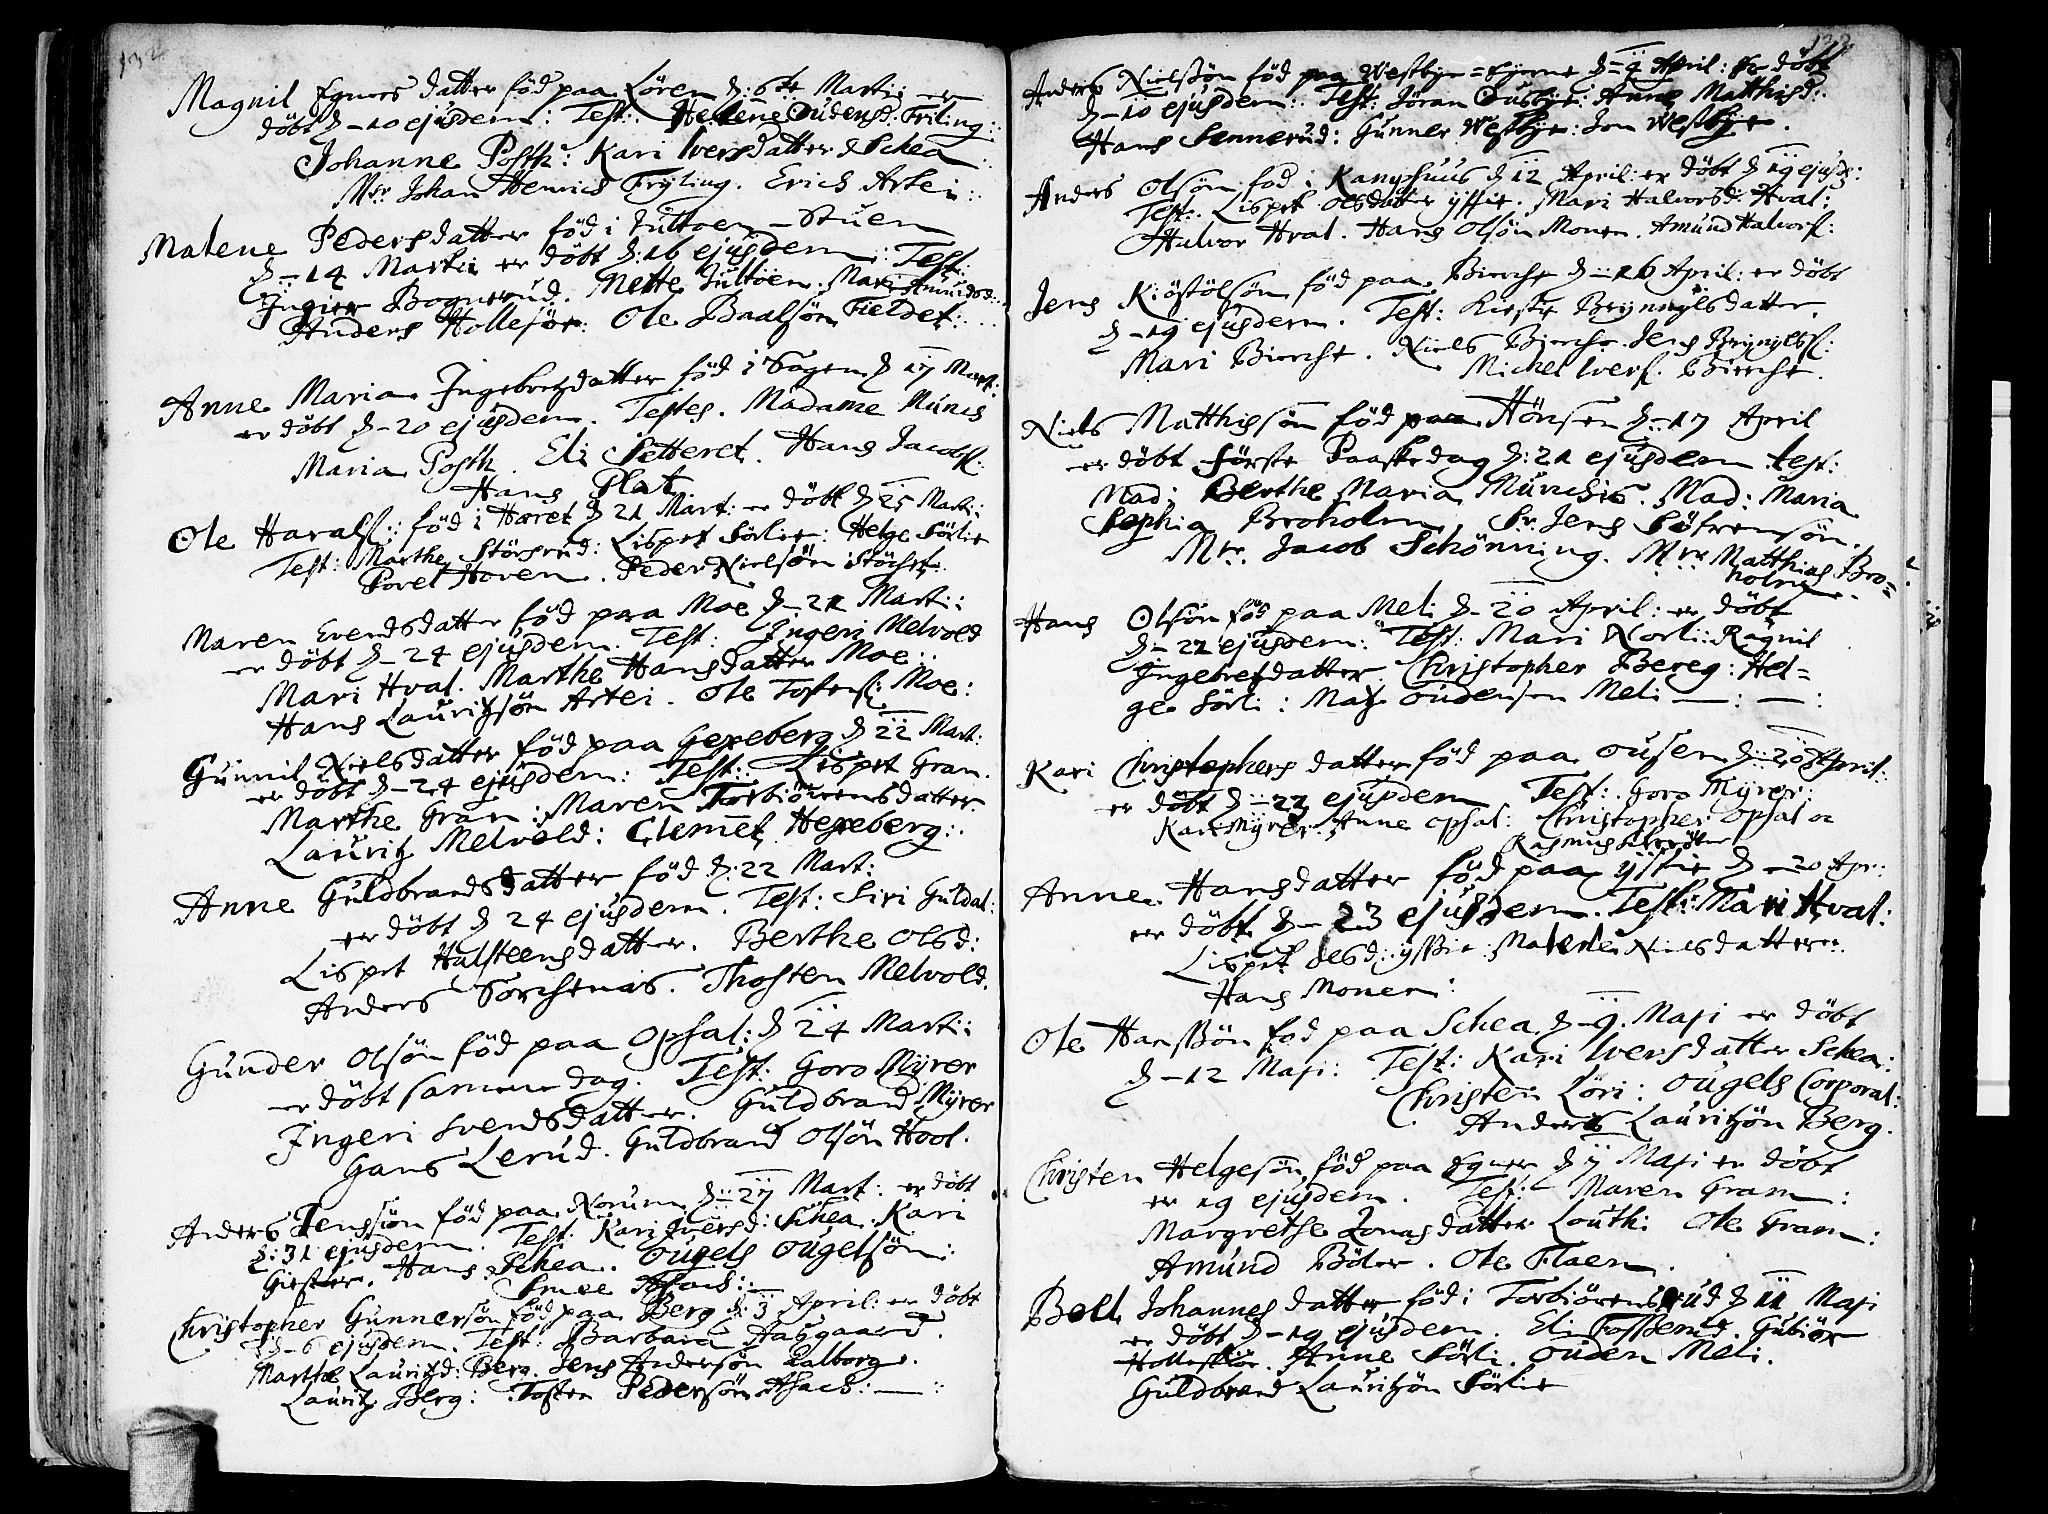 132
Magnil Egners datter föd paa Lören d: 6te Martii er
döbt d-10 ejusdem: Test: Helene Oudensd. Friling:
Johanne Posth: Kari Iversdatter Schea
Mr. Johan Henrich Fryling. Erich Artei
Malene Pedersdatter föd i Jultoen-Stuen
d-14 Martii er döbt d:16 ejusdem: Test:
Ingier Bognerud. Mette Jultoen. Mari Amundsd:
Anders Hollesör: Ole Baalsön Fieldet:
Anne Maria Ingebretzdatter föd i Sagen d 17 Mart:
er döbt d-20 ejusdem. Testes. Madame Munch
Maria Posth. Eli Setteret. Hans Jacobs:
Hans Plat
Ole Harals: föd i Haret d 21 Mart: er döbt d 25 Marti:
Test: Marthe Störsrud: Lispet Sörlie: Helge Sörlie
Porel Hoven. Peder Nielsön
Maren Evendsdatter föd paa Moe d-21 Marti:
er döbt d-24 ejusdem. Test: Ingeri Melvold
Mari Hval. Marthe Hansdatter Moe:
Hans Lauritzsön Artei. Ole Tostens: Moe:
Gunnil Nielsdatter föd paa Gexeberg d 22 Mart:
er döbt d-24 ejusdem: Test: Lispet Gran.
Marthe Gran: Maren Torbiörensdatter
Lauritz Melvold: Clemet Hexeberg:
Anne Guldbrandsdatter föd d:22 Mart:
er döbt d 24 ejusdem. Test: Siri Guldal:
Lispet Halsteensdatter. Berthe Olsd:
Anders Sorchenæs. Thosten Melvold.
Gunder Olsön föd paa Opsal: d 24 Marti:
er döbt samme dag. Test: Goro Myrer
Ingeri Svendsdatter. Guldbrand Myrer
Hans Lerud. Guldbrand Olsön Hool.
Anders Jenssön föd paa Norum d-27 Mart: er döbt
d:31 ejusdem. Test: Kari Iversd: Schea. Kari
Giester. Hans Schea. Ougels Ougelsön:
Christopher Gunnersön föd paa Berg d: 3 April: er döbt
d-6 ejusdem. Test: Barbara Haugaard.
Marthe Lauritzd: Berg. Jens Andersön Aalborg.
Lauritz Berg: Tosten Pedersön Asach:
Anders Nielssön föd paa Westbye=Eyerne d=4 April: er döbt
d-10 ejusdem: Test: Jöran Ousbye: Anne Matthisd:
Hans Sennerud: Gunner Westbye: Jon Westbye.
Anders Olsön fod i Kamphuus d 12 April: er döbt d 19 ejusd:
Test: Lispet Olsdatter ystie. Mari Halvorsd: Hval:
Halvor Hval. Hans Olsön Monen. Amund Halvors:
Jens Kiöstölsön föd paa Bierche d-16 April: er döbt
d-19 ejusdem. Test: Kirstie Brynnylsdatter.
Mari Bierche. Niels Bierche. Jens Brynyls:
Michel Ivers. Bierche.
Niels Matthissön föd paa Hönsen d-17 April
er döbt Förste Paaskedag d:21 ejusdem. test:
Mad: Berthe Maria Münchis. Mad: Maria
Sophia Broholm. Sr. Jens Söfrensön.
Mr. Jacob Schönning. Mr Matthias Bro=
holm.
Hans Olsön föd paa Meli d-20 April: er döbt
d-22 ejusdem: Test: Mari Norli: Ragnil
Ingebretsdatter. Christopher Bereg: Hel=
ge Sörli: Matz Oudensen Meli
Kari Christophers datter föd paa Ousen d-20 April:
er döbt d-22 ejusdem Test: Goro Myrer:
Kari Myrer. Anne Opsal: Christopher Opsal
Anne Hansdatter föd paa ystie d-20 Apr:
er döbt d-23 ejusdem. Test: Mari Hval:
Lispet Olsd: ystie: Malene Nielsdatter:
Hans Monen:
Ole Hanssön fod paa Schea d-9. Maji er döbt
d-12 Maji: Test: Kari Iversdatter Schea:
Christen Löri: Ougels Corporal:
Anders Lauritzön Berg.
Christen Helgesön föd paa Egner d 7 Maji er döbt
er 19 ejusdem. Test: Maren Gram:
Margrethe Jonasdatter Louth: Ole Gram:
Amund Böler. Ole Flaen.
Boel Johannes datter föd i Torbiörensrud d 11 Maji
er döbt d-19 ejusdem. Eli Fosserud. Gubiör
Hollesör. Anne Sörli. Ouden Meli.
Guldbrand Lauritzön Sörlie